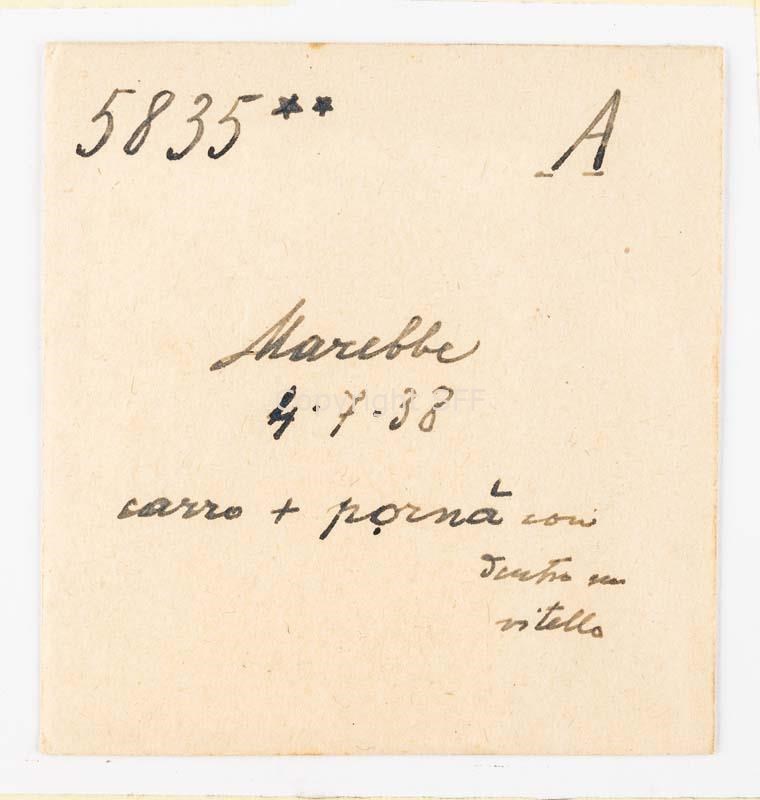 5835** A
Marebbe
4·7·38
Copyright SFF
carro + pọrnà con
dentro un
vitello